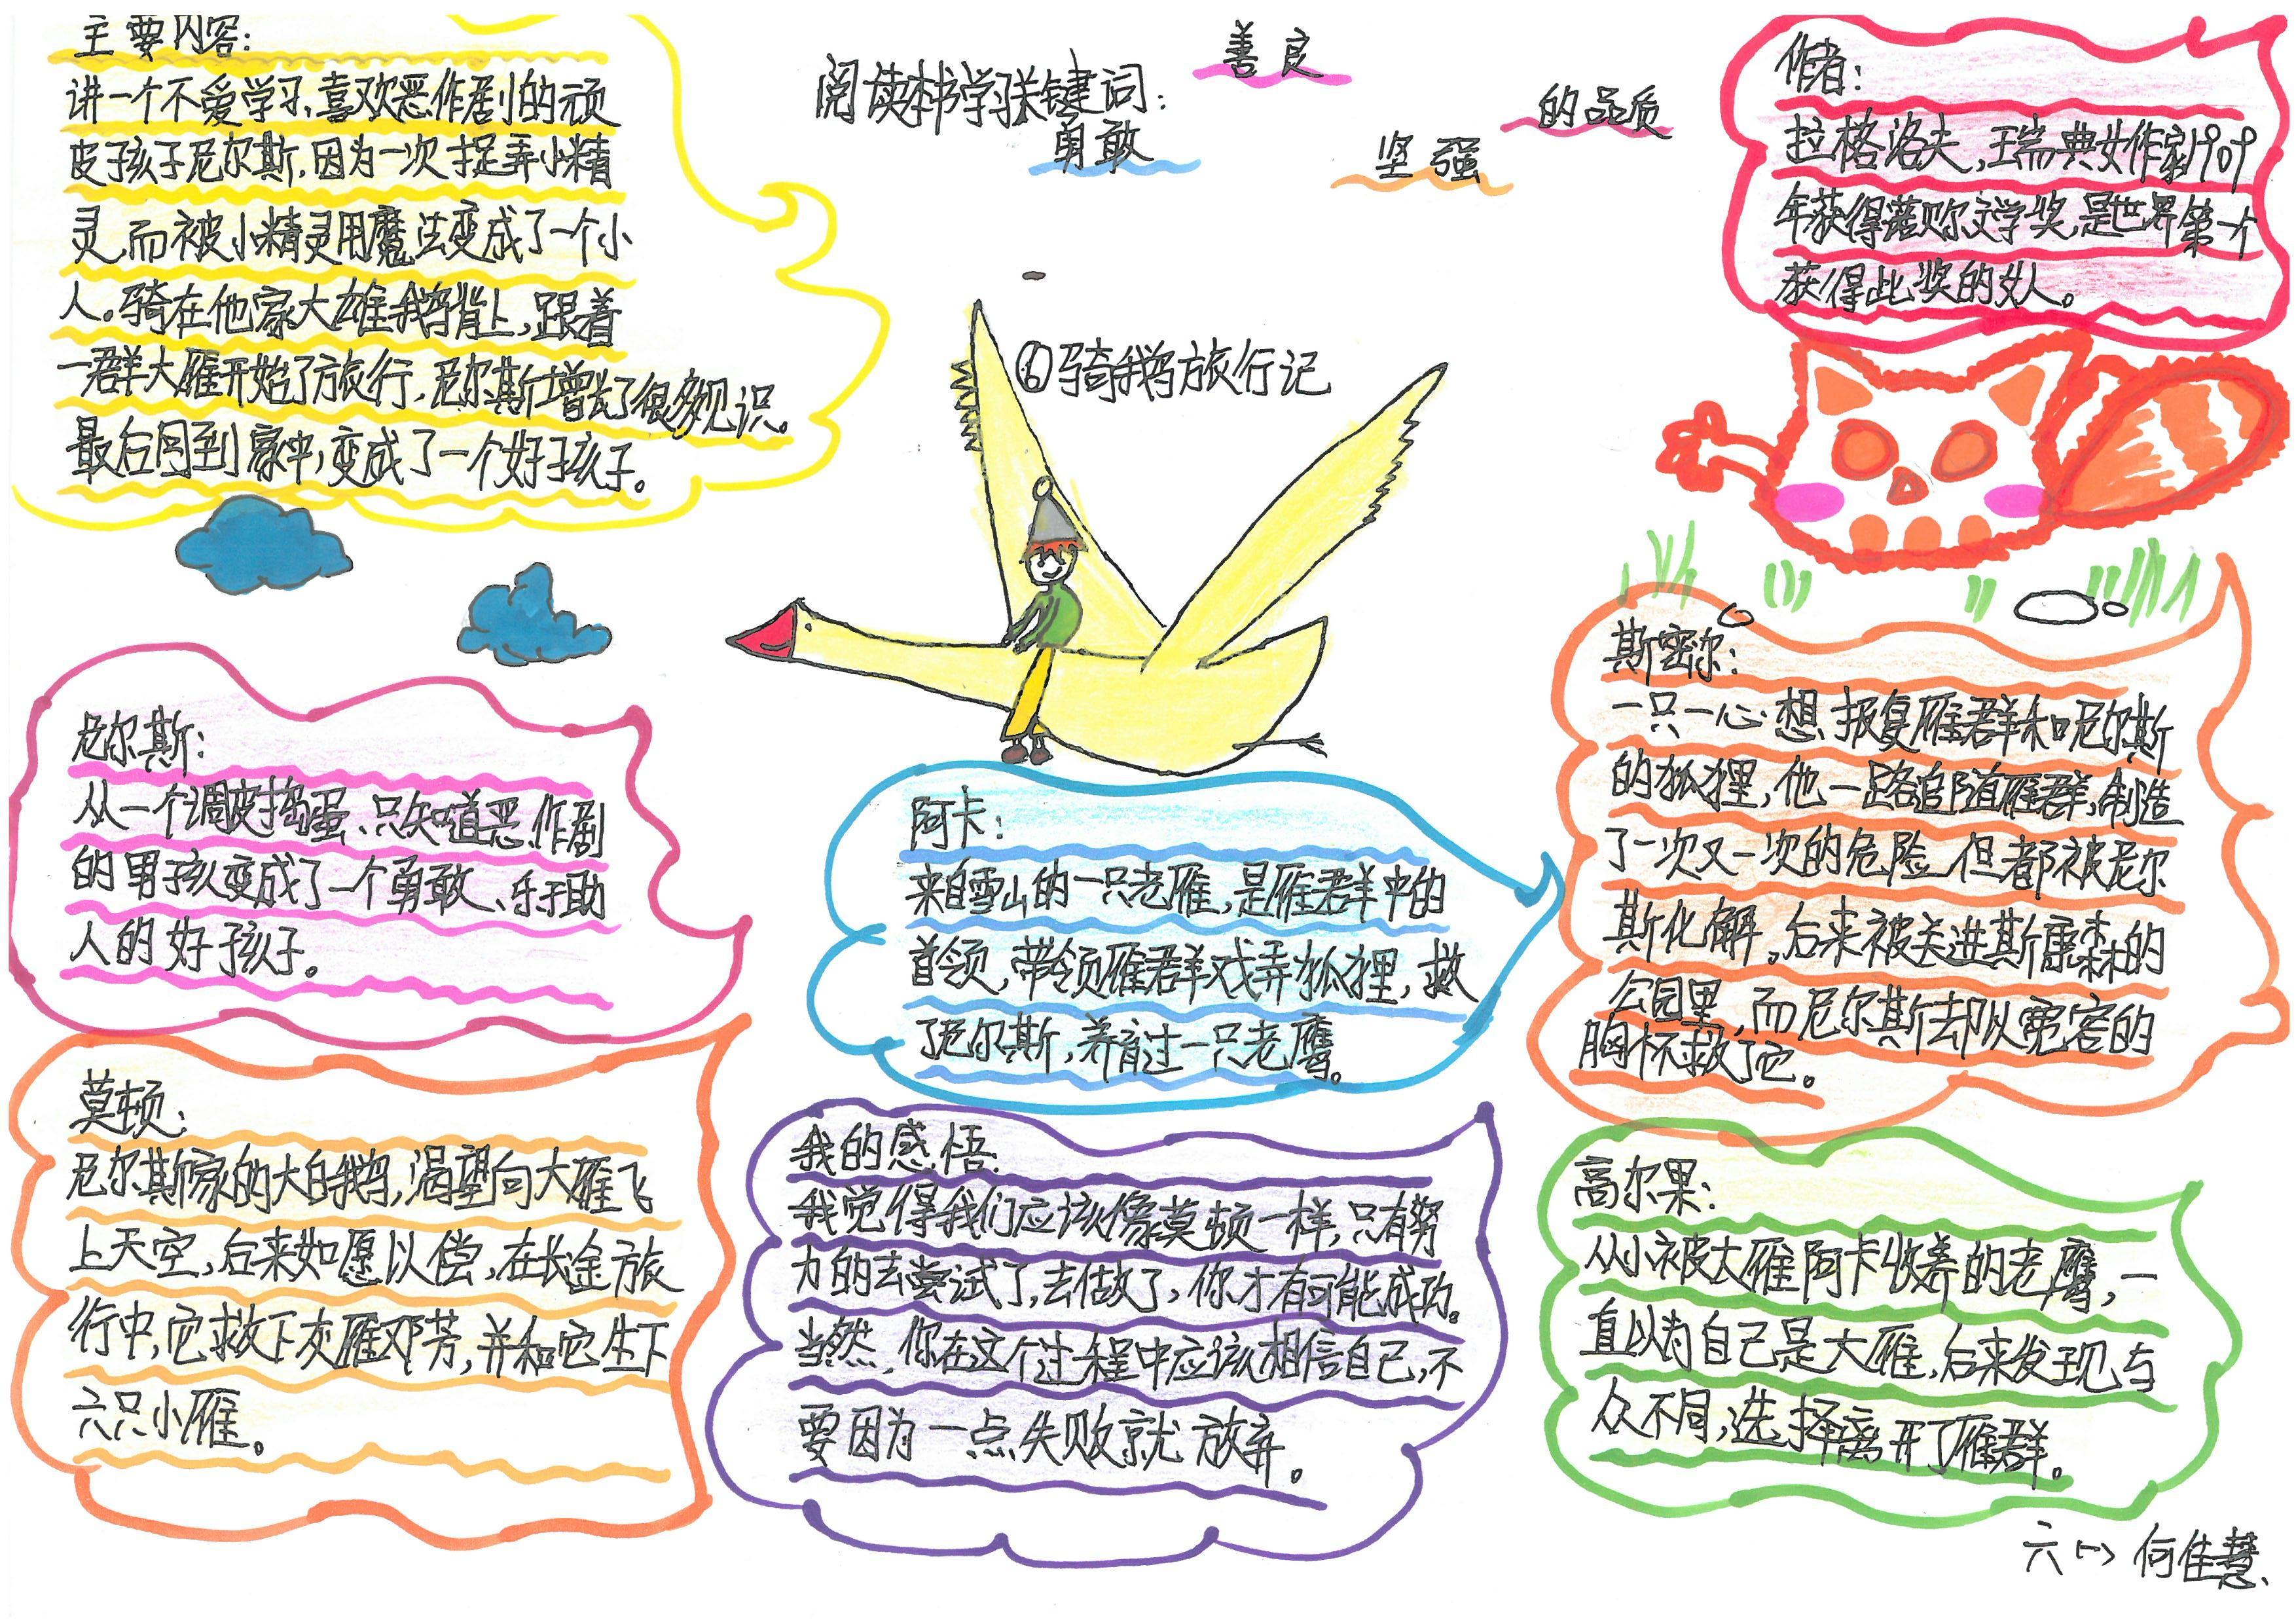 主要内容：
讲一个不爱学习，喜欢恶作剧的顽
皮孩子尼尔斯，因为一次捉弄小精
灵，而被小精灵用魔法变成了一个小
人。骑在他家大雄鹅背上，跟着
一群大雁开始了旅行，尼尔斯增长了很多见识。
最后回到家中，变成了一个好孩子。
阅读本书学习关键词：
善良
勇敢
坚强
的品质
作者：
拉格洛夫，瑞典女作家1909
年获得诺贝尔文学奖，是世界第一个
获得此奖的女人。
⑥骑鹅旅行记
尼尔斯：
从一个调皮捣蛋、只知道恶作剧
的男孩变成了一个勇敢、乐于助
人的好孩子。
阿卡：
来自雪山的一只老雁，是雁群中的
首领，带领雁群戏弄狐狸，救
了尼尔斯，养育过一只老鹰。
斯密尔：
一只一心想报复雁群和尼尔斯
的狐狸，他一路追随雁群，制造
了一次又一次的危险，但都被尼尔
斯化解，后来被关进斯康森的
公园里，而尼尔斯却以宽容的
胸怀救了它。
莫顿：
尼尔斯家的大白鹅，渴望向大雁飞
上天空，后来如愿以偿，在长途旅
行中，它救下灰雁邓芬，并和它生下
六只小雁。
我的感悟：
我觉得我们应该像莫顿一样，只有努
力的去尝试了，去做了，你才有可能成功。
当然，你在这个过程中应该相信自己，不
要因为一点失败就放弃。
高尔果：
从小被大雁阿卡收养的老鹰，一
直以为自己是大雁，后来发现与
众不同，选择离开了雁群。
六（一）何佳慧